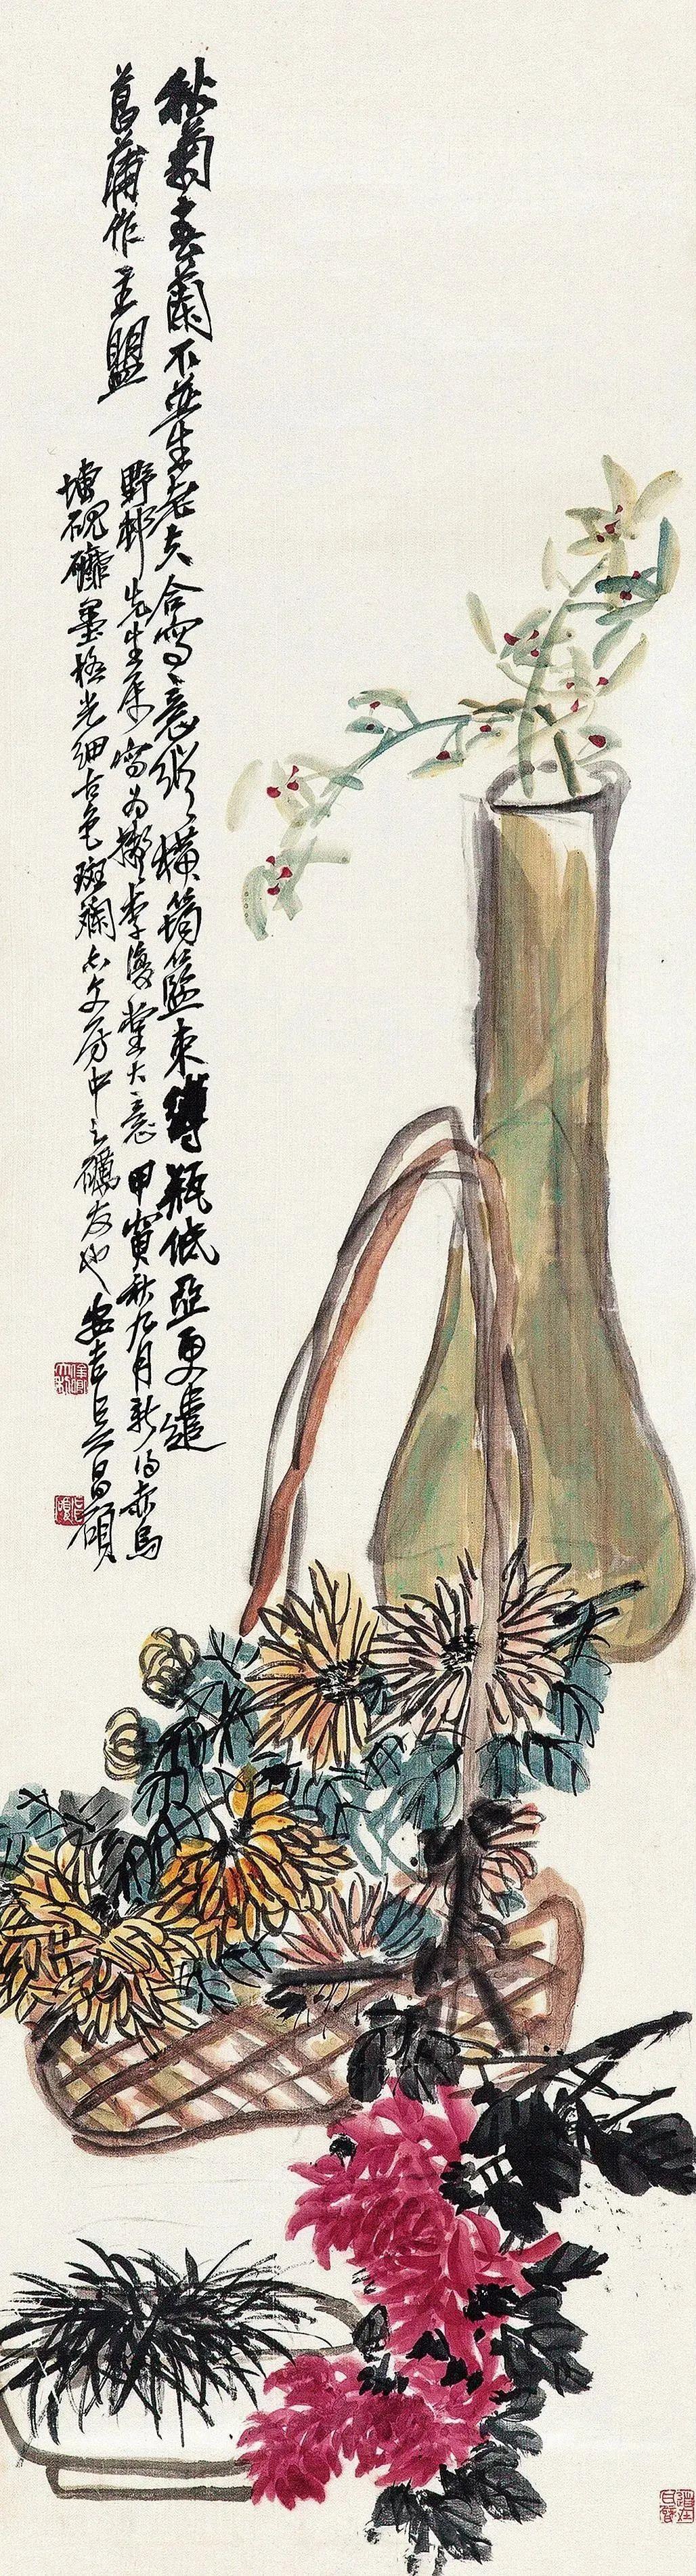 秋菊春蘭不並生老夫合寫意縱橫筠籃束縛瓶低亞更遣
菖蒲作主盟
野邨先生屬寫為擬李復堂大意甲寅秋九月新得赤烏
塼硯磨墨極光細古色斑斕亦文房中之礪友也安吉吳昌碩